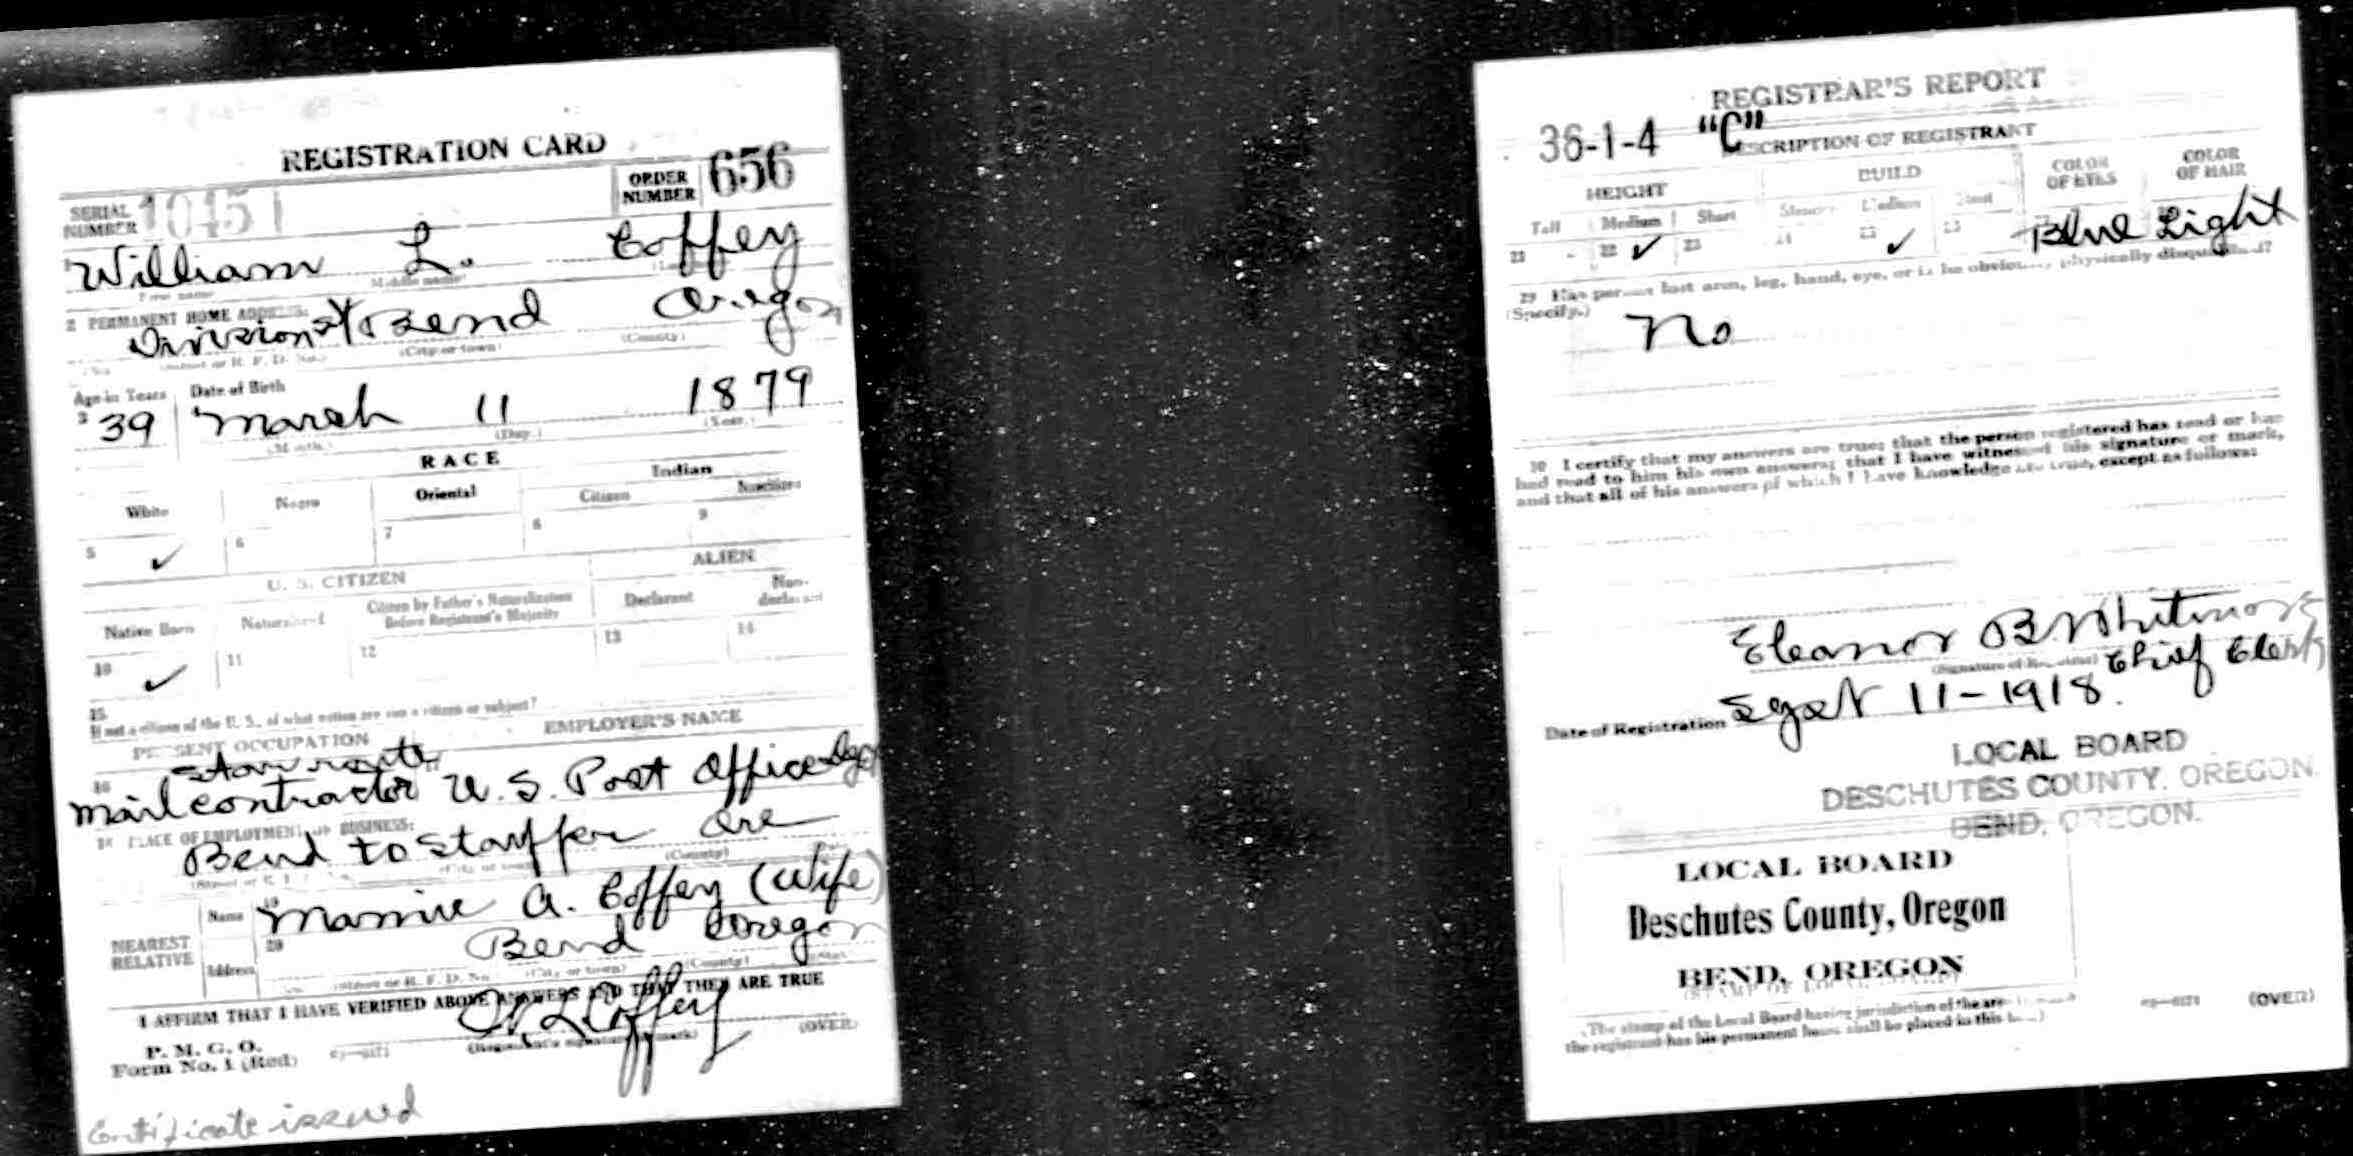 REGISTRATION CARD
SERIAL NUMBER 1045
ORDER NUMBER 656
1 William L. Coffey
First name Middle name
2 PERMANENT HOME ADDRESS:
Division St Bend Oregon
(Street or R. F. D. No.) (City or town) (County)
Age in Years Date of Birth
3 39 March 11 1879
(Month.) (Day.) (Year.)
RACE
White Negro Oriental Indian
Citizen Noncitizen
5 ✓ 6 7 8 9
U. S. CITIZEN ALIEN
Native Born Naturalized Citizen by Father's Naturalization Before Registrant's Majority Declarant Non-declarant
10 ✓ 11 12 13 14
15
If not a citizen of the U. S., of what nation are you a citizen or subject?
PRESENT OCCUPATION EMPLOYER'S NAME
16 Star route
mail contractor U. S. Post Office Dept
18 PLACE OF EMPLOYMENT OR BUSINESS:
Bend to Stauffer Ore
(County)
NEAREST RELATIVE
Name 19 Mamie A. Coffey (wife)
Address 20 Bend Oregon
(Street or R. F. D. No.) (City or town) (County) (State)
I AFFIRM THAT I HAVE VERIFIED ABOVE ANSWERS AND THAT THEY ARE TRUE
P. M. G. O.
Form No. 1 (Red)
W L Coffey
(Registrant's signature or mark)
(OVER)
Certificate issued
REGISTRAR'S REPORT
36-1-4 "C"
DESCRIPTION OF REGISTRANT
HEIGHT BUILD COLOR OF EYES COLOR OF HAIR
Tall Medium Short Slender Medium Stout
21 22 ✓ 23 24 25 ✓ Blue Light
29 Has person lost arm, leg, hand, eye, or is he obviously physically disqualified?
(Specify.)
No
30 I certify that my answers are true; that the person registered has read or has
had read to him his own answers; that I have witnessed his signature or mark,
and that all of his answers of which I have knowledge are true, except as follows:
Eleanor B Whitmore
(Signature of Registrar) Chief Clerk
Date of Registration Sept 11-1918.
LOCAL BOARD
DESCHUTES COUNTY, OREGON.
BEND, OREGON.
LOCAL BOARD
Deschutes County, Oregon
BEND, OREGON
(STAMP OF LOCAL BOARD)
(The stamp of the Local Board having jurisdiction of the area in which
the registrant has his permanent home shall be placed in this box.)
(OVER)